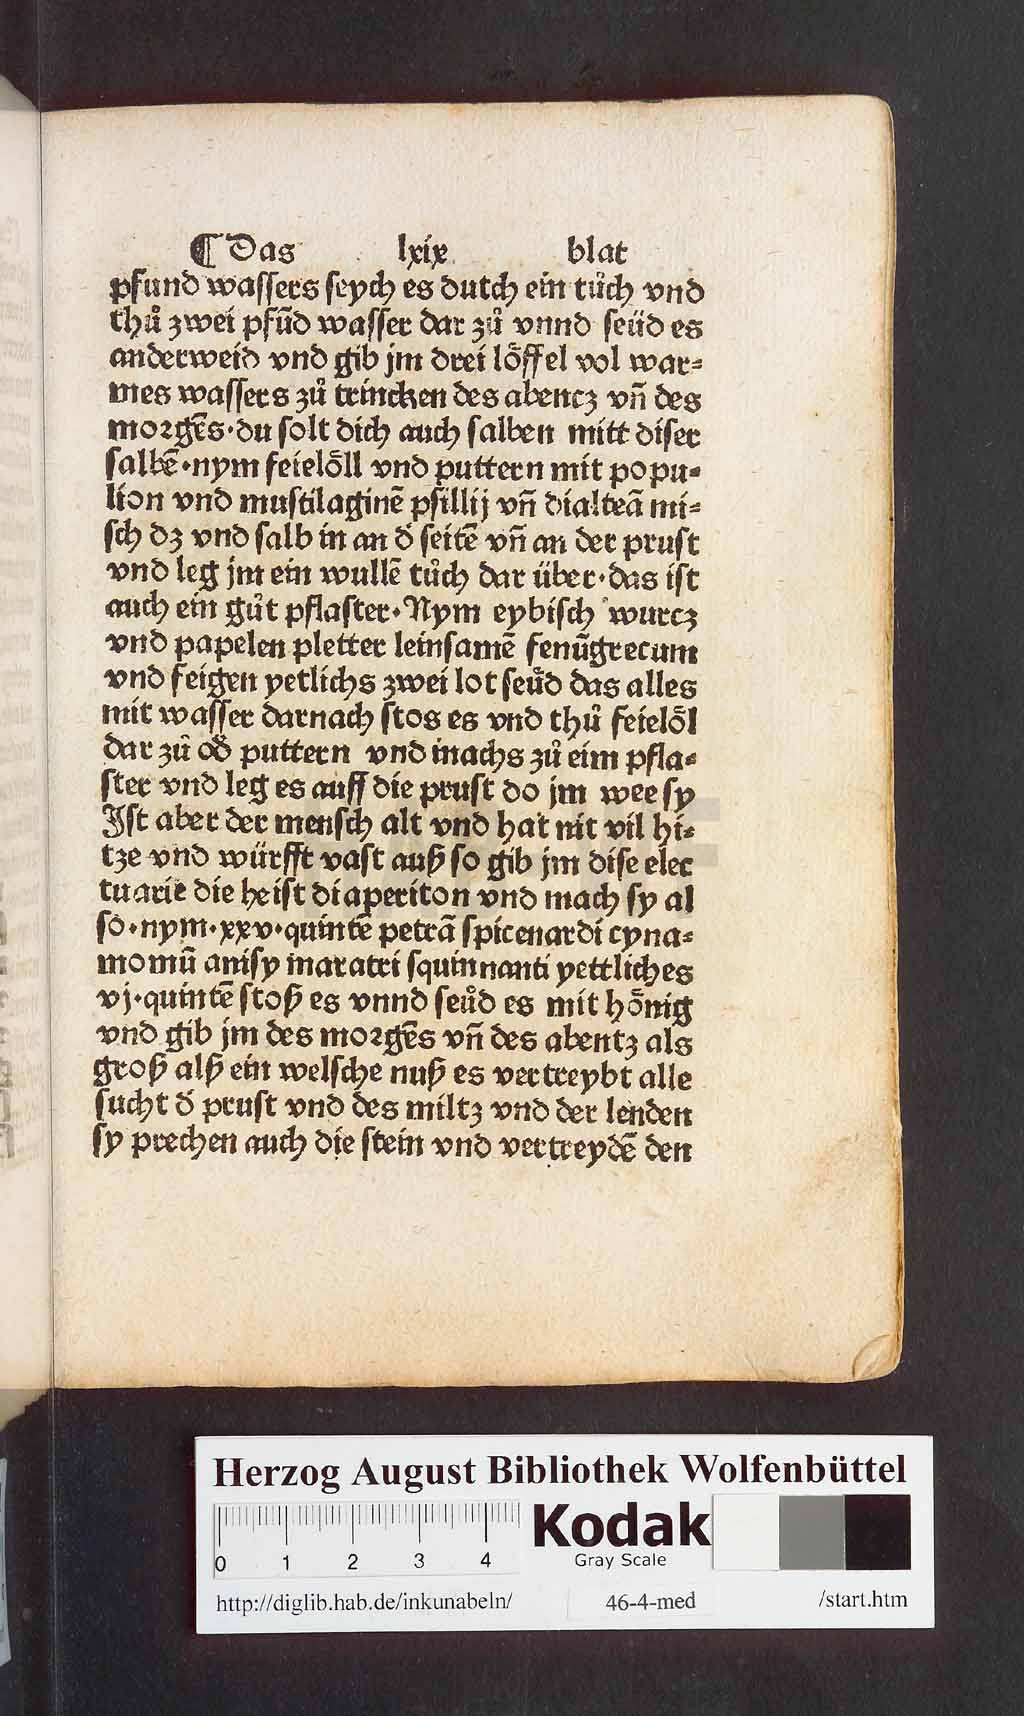 ¶ Das lxix blat
pfund wassers seych es dutch ein tůch vnd
thů zwei pfūd wasser dar zů vnnd seüd es
anderweid vnd gib jm drei lo̊ffel vol war=
mes wassers zů trincken des abencz vn̄ des
morgēs·du solt dich auch salben mitt diser
salbē·nym feielo̊ll vnd puttern mit popu=
lion vnd mustilaginē psillij vn̄ dialteā mi=
sch dz vnd salb in an d̓ seitē vn̄ an der prust
vnd leg jm ein wullē tůch dar über·das ist
auch ein gůt pflaster·Nym eybisch wurcz
vnd papelen pletter leinsamē fenūgrecum
vnd feigen yetlichs zwei lot seůd das alles
mit wasser darnach stos es vnd thů feielo̊l
dar zů od̓ puttern vnd machs zů eim pfla=
ster vnd leg es auff die prust do jm wee sy
Ist aber der mensch alt vnd hat nit vil hi=
tze vnd würfft vast auß so gib jm dise elec
tuariē die heist diaperiton vnd mach sy al
so·nym·xxv·quintē petrā spicenardi cyna=
momū anisy maratri squinnanti yettliches
vj·quintē stoß es vnnd seůd es mit ho̊nig
vnd gib jm des morgēs vn̄ des abentz als
groß alß ein welsche nuß es vertreybt alle
sucht d̓ prust vnd des miltz vnd der lenden
sy prechen auch die stein vnd vertreydē den
Herzog August Bibliothek Wolfenbüttel
0 1 2 3 4
Kodak
Gray Scale
http://diglib.hab.de/inkunabeln/ 46-4-med /start.htm